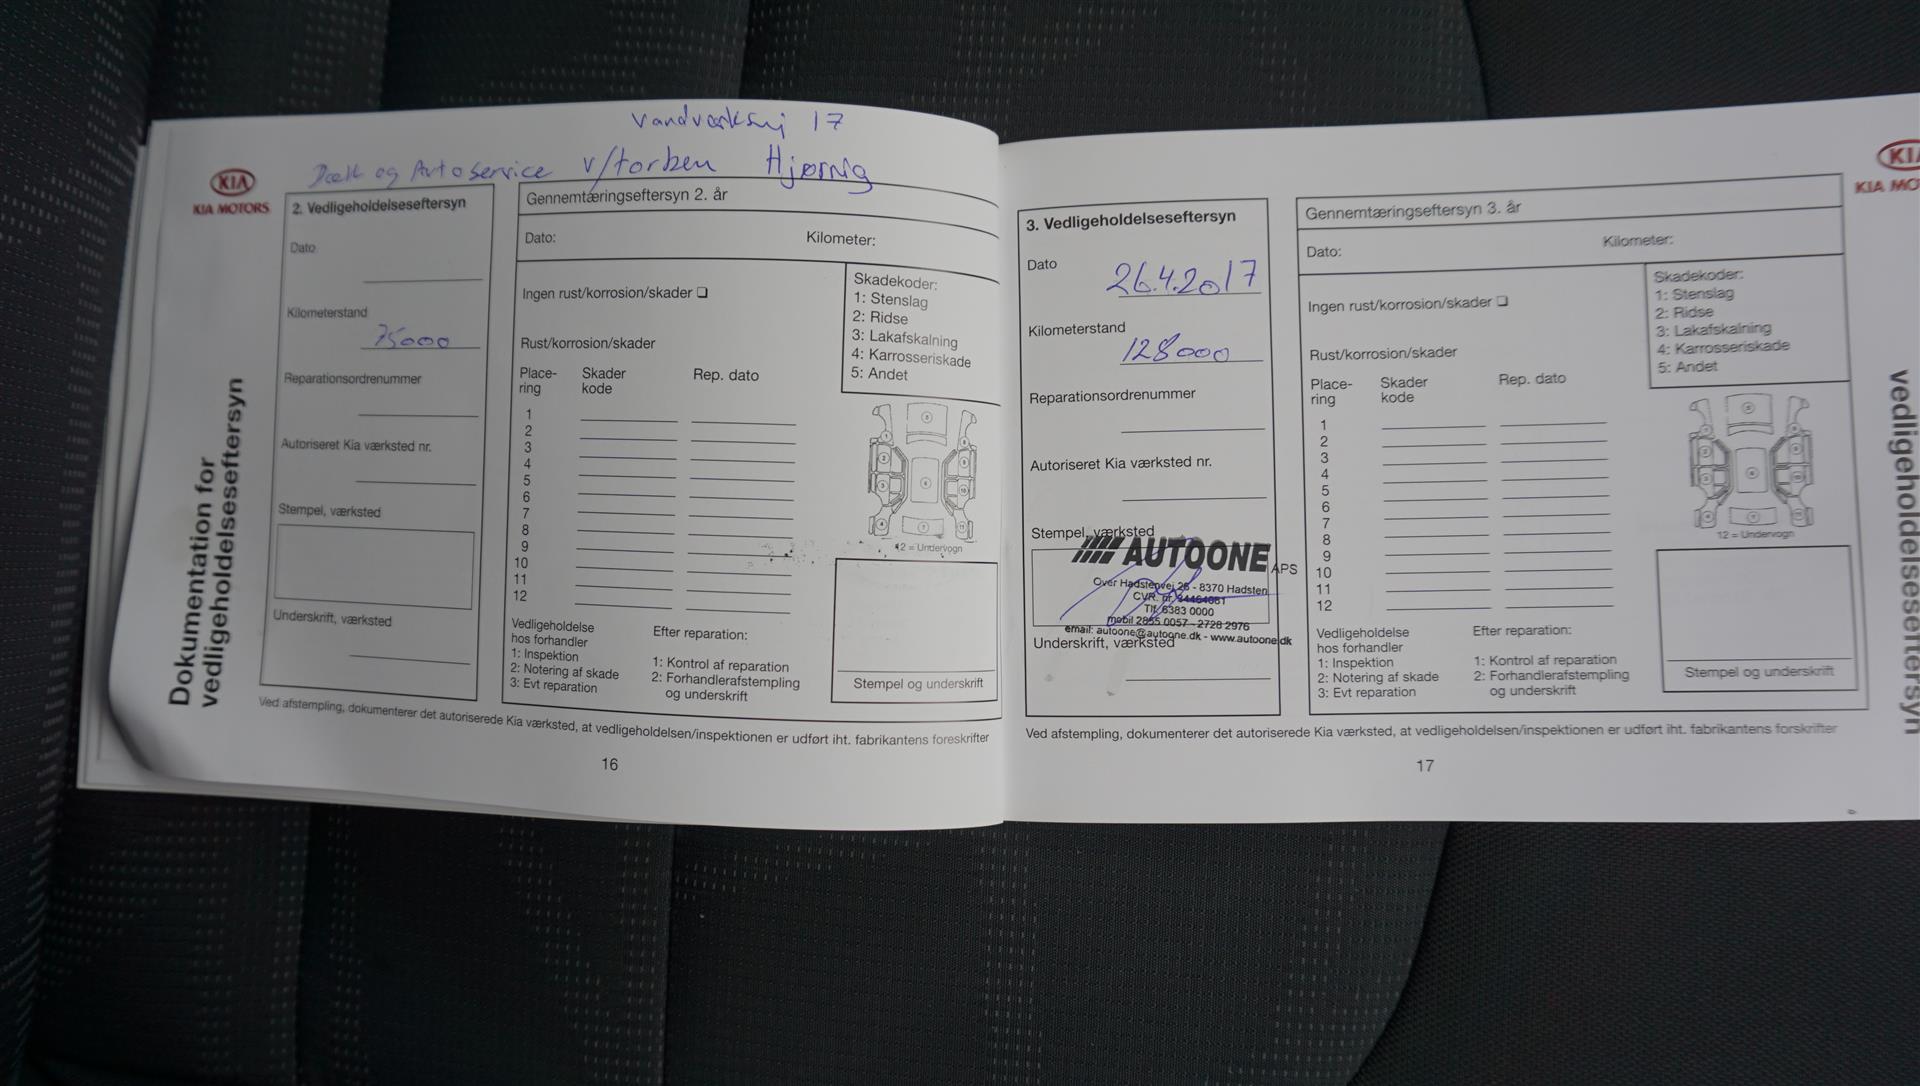 Vandværksvej 17
Dæk og Autoservice v/torben Hjørnig
KIA
KIA MOTORS
Dokumentation for
vedligeholdelseseftersyn
2. Vedligeholdelseseftersyn
Dato
Kilometerstand
75000
Reparationsordrenummer
Autoriseret Kia værksted nr.
Stempel, værksted
Underskrift, værksted
Gennemtæringseftersyn 2. år
Dato: Kilometer:
Ingen rust/korrosion/skader
Skadekoder:
1: Stenslag
2: Ridse
3: Lakafskalning
4: Karrosseriskade
5: Andet
Rust/korrosion/skader
Place-
ring
Skader
kode
Rep. dato
1
2
3
4
5
6
7
8
9
10
11
12
12 = Undervogn
Vedligeholdelse
hos forhandler
1: Inspektion
2: Notering af skade
3: Evt reparation
Efter reparation:
1: Kontrol af reparation
2: Forhandlerafstempling
og underskrift
Stempel og underskrift
Ved afstempling, dokumenterer det autoriserede Kia værksted, at vedligeholdelsen/inspektionen er udført iht. fabrikantens foreskrifter
16
3. Vedligeholdelseseftersyn
Dato
26.4.2017
Kilometerstand
128000
Reparationsordrenummer
Autoriseret Kia værksted nr.
Stempel, værksted
AUTOONE APS
Over Hadstenvej 26 - 8370 Hadsten
CVR. nr.
Tlf. 6383 0000
mobil 2855 0057 - 2728 2976
email: autoone@autoone.dk - www.autoone.dk
Underskrift, værksted
Gennemtæringseftersyn 3. år
Dato: Kilometer:
Ingen rust/korrosion/skader
Skadekoder:
1: Stenslag
2: Ridse
3: Lakafskalning
4: Karrosseriskade
5: Andet
Rust/korrosion/skader
Place-
ring
Skader
kode
Rep. dato
1
2
3
4
5
6
7
8
9
10
11
12
12 = Undervogn
Vedligeholdelse
hos forhandler
1: Inspektion
2: Notering af skade
3: Evt reparation
Efter reparation:
1: Kontrol af reparation
2: Forhandlerafstempling
og underskrift
Stempel og underskrift
Ved afstempling, dokumenterer det autoriserede Kia værksted, at vedligeholdelsen/inspektionen er udført iht. fabrikantens forskrifter
17
KIA
KIA MO
vedligeholdelseseftersyn